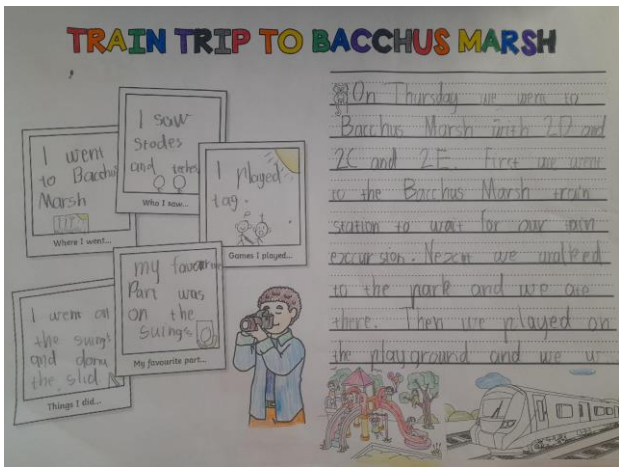 TRAIN TRIP TO BACCHUS MARSH
I went
to Bacchus
Marsh
Where I went...
I saw
Stodes
and
Who I saw...
I played
tag.
Games I played...
my favourite
Part was
on the
Swings
My favourite part...
I went on
the swings
and down
the slid
Things I did...
On Thursday we went to
Bacchus Marsh with 2D and
2C and 2E. First we went
to the Bacchus Marsh train
station to wait for our tain
excursion. Nexcnt we walked
to the park and we ate
there. Then we played on
the playground and we